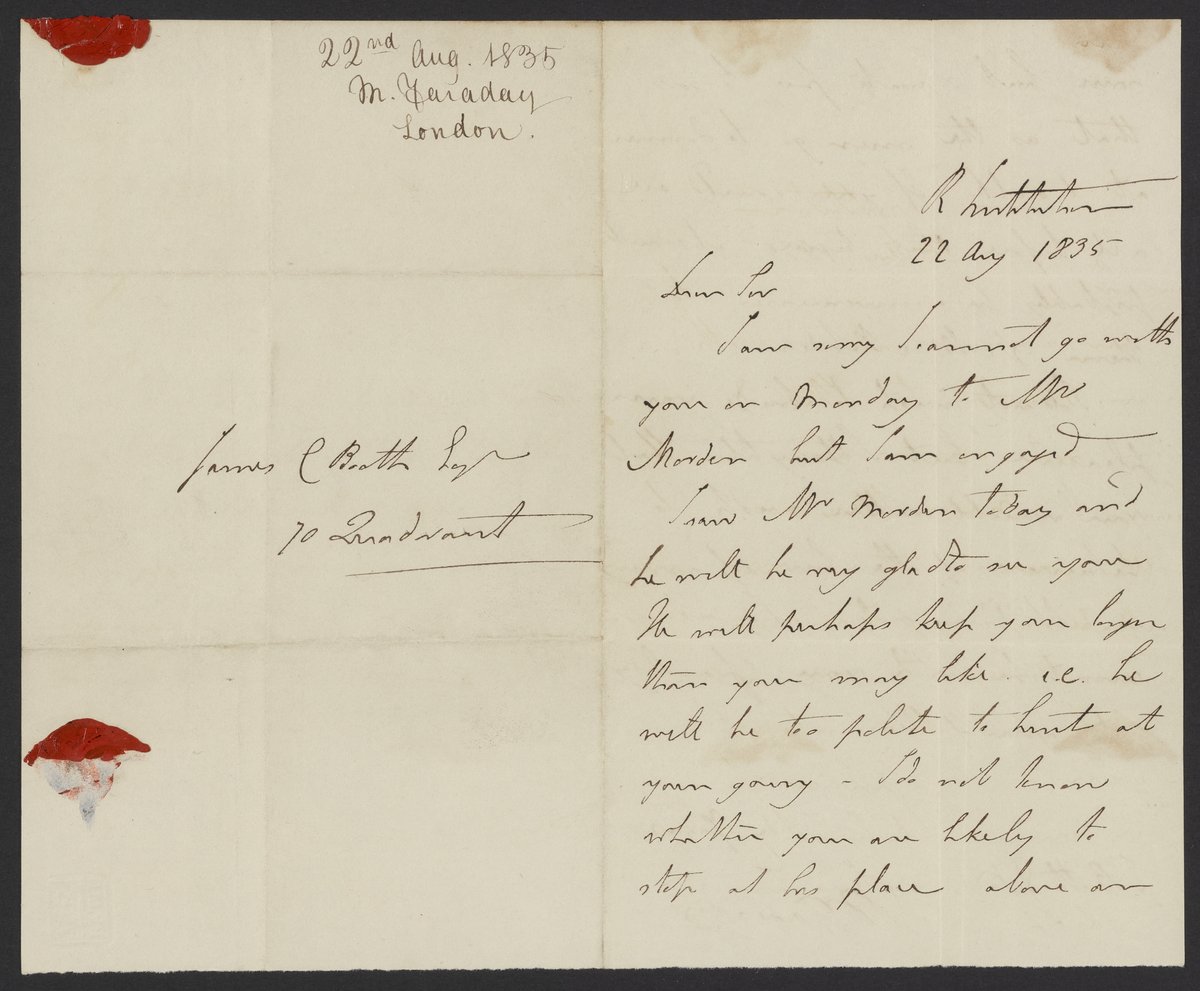 22nd Aug. 1835
M. Faraday
London.
James C Booth Esqr
70 Quadrant
R Institution
22 Aug 1835
Dear Sir
I am sorry I cannot go with
you on Monday to Mr
Morden but I am engaged
I saw Mr Morden to day and
he will be very glad to see you
He will perhaps keep you longer
than you may like. i.e. he
will be too polite to hint at
your going - I do not know
whether you are likely to
stop at his place above an